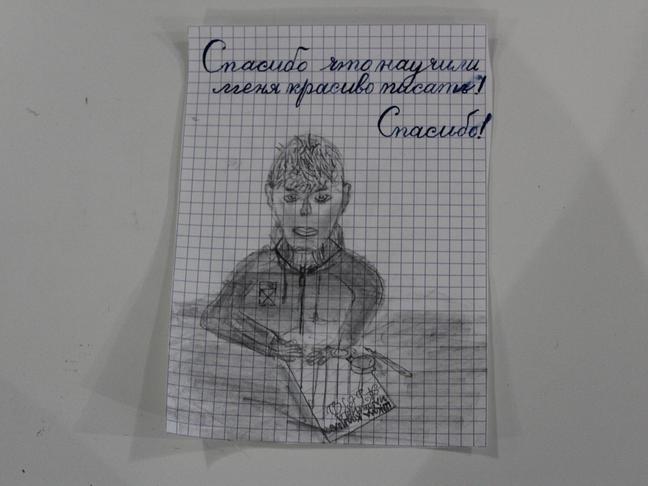 Спасибо что научили
меня красиво писать!
Спасибо!